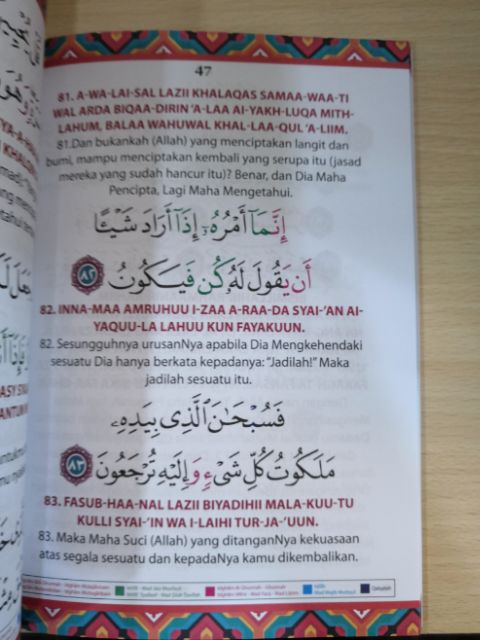 47
81. A-WA-LAI-SAL LAZII KHALAQAS SAMAA-WAA-TI
WAL ARDA BIQAA-DIRIN 'A-LAA AI-YAKH-LUQA MITH-
LAHUM, BALAA WAHUWAL KHAL-LAA-QUL 'A-LIIM.
81.Dan bukankah (Allah) yang menciptakan langit dan
bumi, mampu menciptakan kembali yang serupa itu (jasad
mereka yang sudah hancur itu)? Benar, dan Dia Maha
Pencipta, Lagi Maha Mengetahui.
إِنَّمَآ أَمْرُهُۥٓ إِذَآ أَرَادَ شَيْـًٔا
أَن يَقُولَ لَهُۥ كُن فَيَكُونُ ٨٢
82. INNA-MAA AMRUHUU I-ZAA A-RAA-DA SYAI-'AN AI-
YAQUU-LA LAHUU KUN FAYAKUUN.
82. Sesungguhnya urusanNya apabila Dia Mengkehendaki
sesuatu Dia hanya berkata kepadanya: "Jadilah!" Maka
jadilah sesuatu itu.
فَسُبْحَـٰنَ ٱلَّذِى بِيَدِهِۦ
مَلَكُوتُ كُلِّ شَىْءٍ وَإِلَيْهِ تُرْجَعُونَ ٨٣
83. FASUB-HAA-NAL LAZII BIYADIHII MALA-KUU-TU
KULLI SYAI-'IN WA I-LAIHI TUR-JA-'UUN.
83. Maka Maha Suci (Allah) yang ditanganNya kekuasaan
atas segala sesuatu dan kepadaNya kamu dikembalikan.